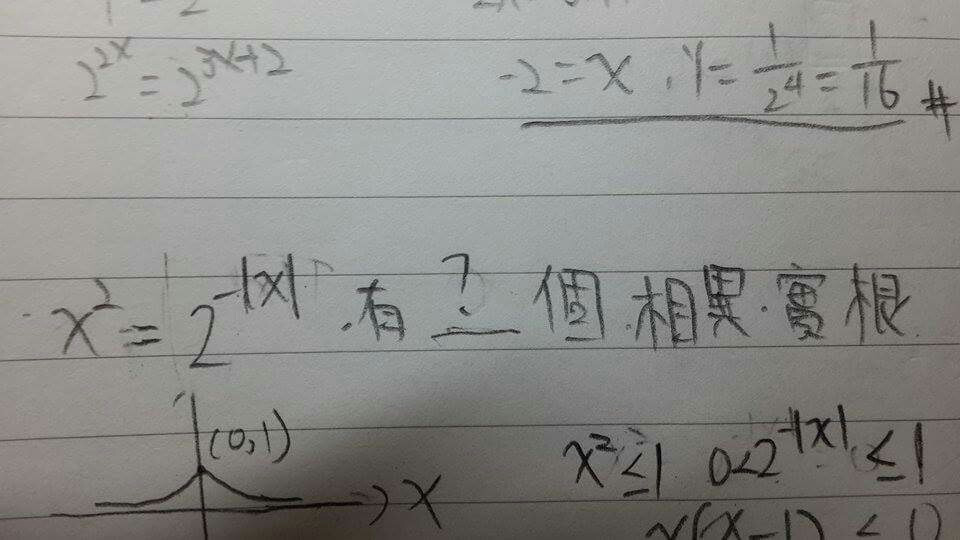 2^{2x} = 2^{3x+2}
-2 = x , y = \frac{1}{2^4} = \frac{1}{16} #
x^2 = 2^{-|x|} , 有 ? 個 相異 實根
(0,1)
x
x^2 ≤ 1 0 < 2^{-|x|} ≤ 1